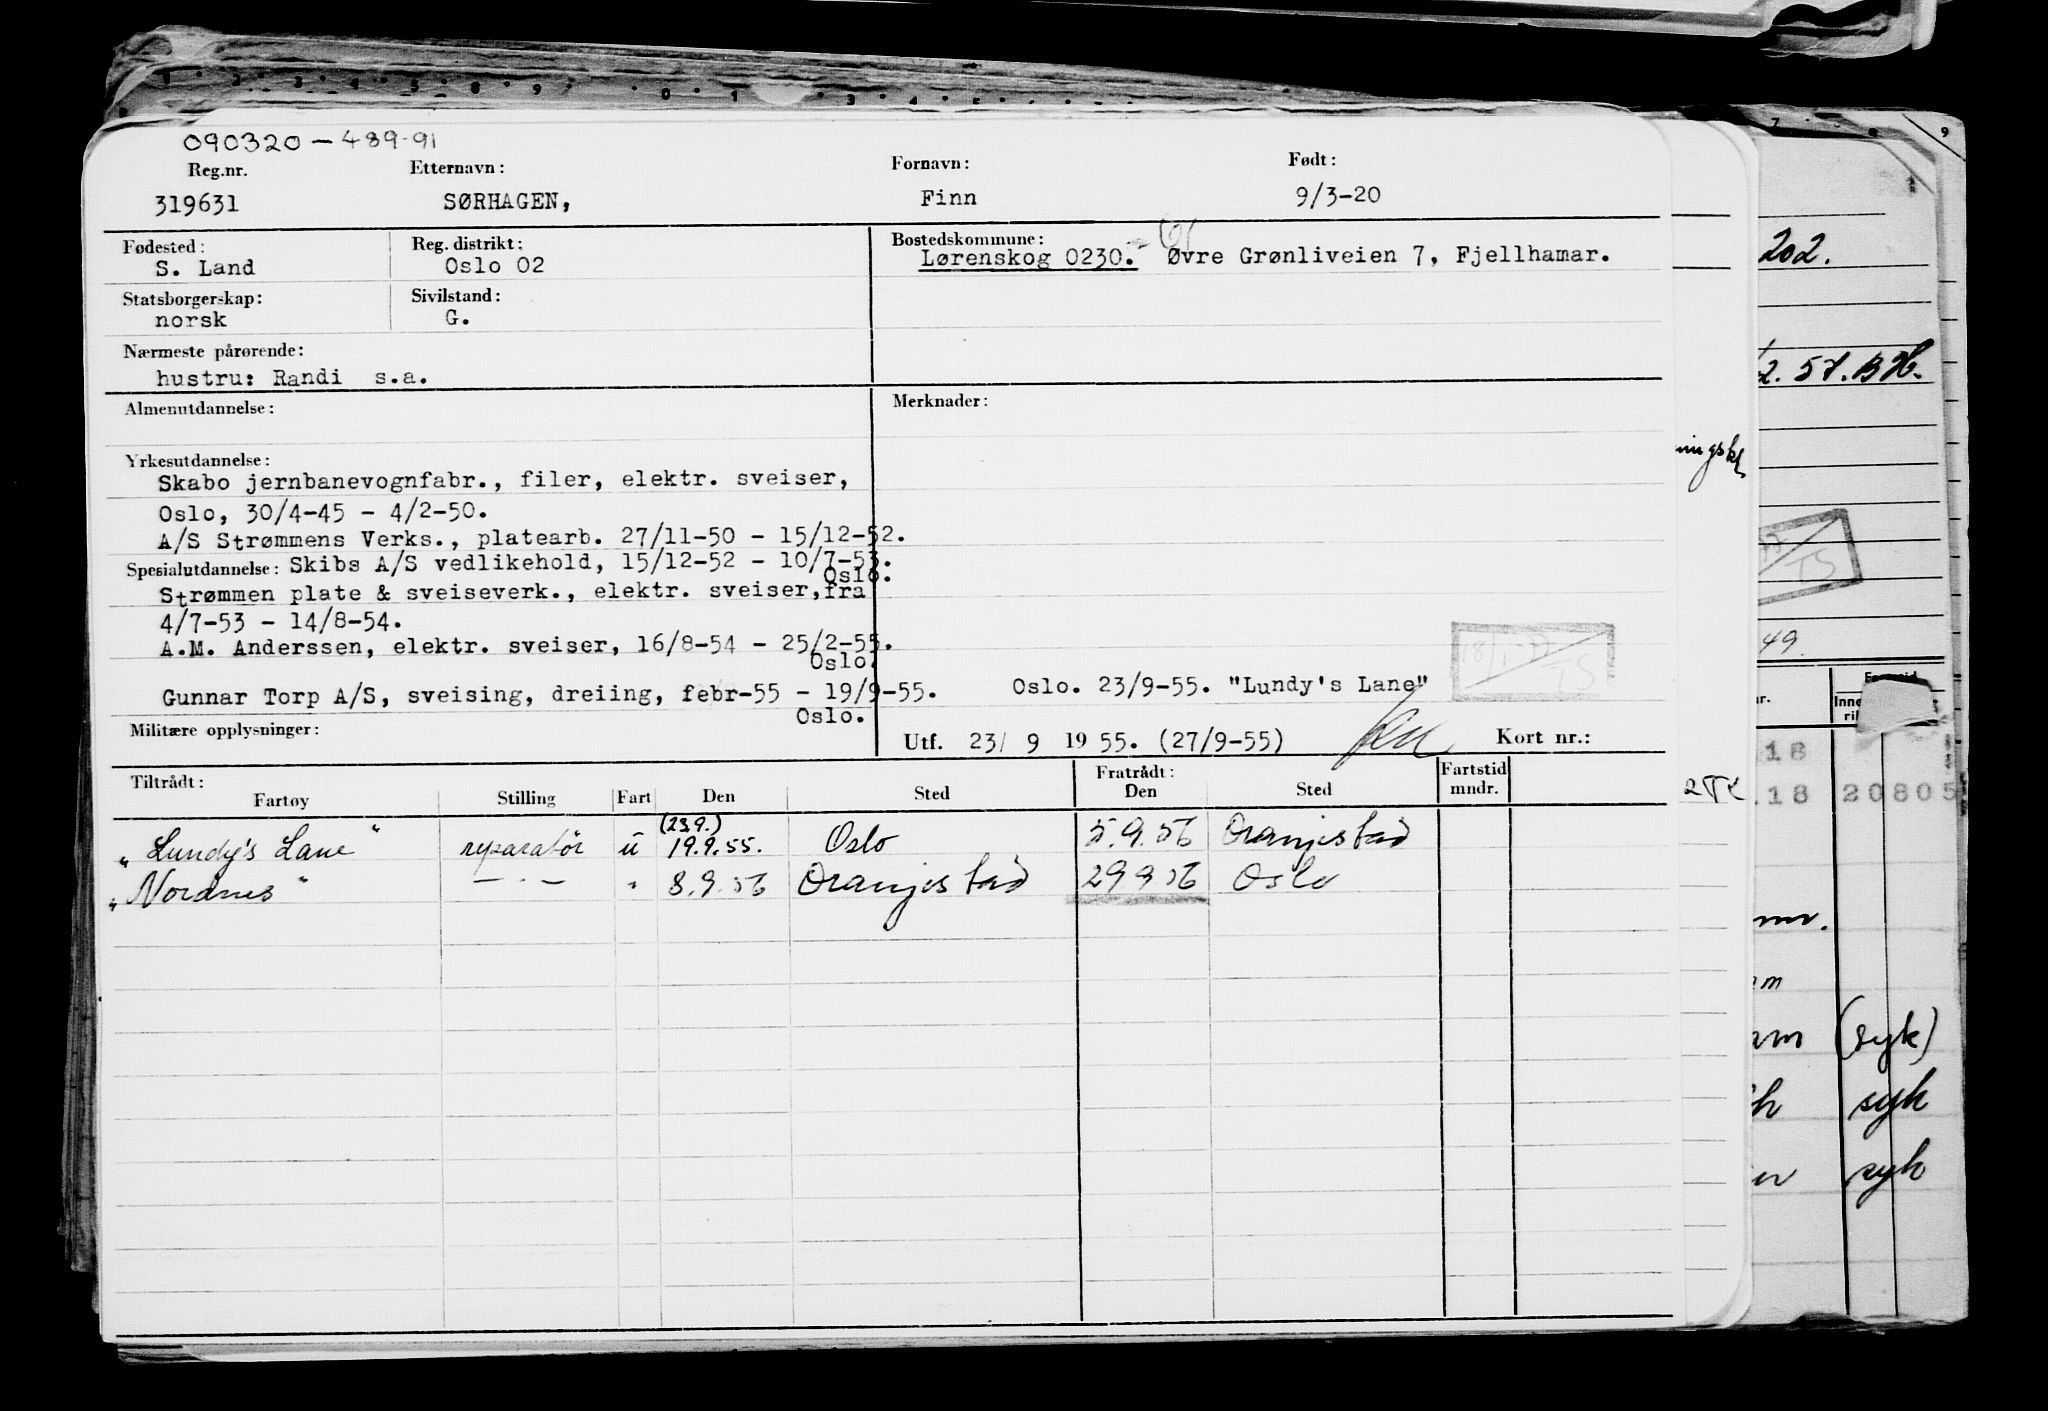 090320-489-91
Reg.nr. Etternavn: Fornavn: Født:
319631 SØRHAGEN, Finn 9/3-20
Fødested: Reg. distrikt: Bostedskommune:
S. Land Oslo 02 Lørenskog 0230. Øvre Grønliveien 7, Fjellhamar.
Statsborgerskap: Sivilstand:
norsk G.
Nærmeste pårørende:
hustru: Randi s.a.
Almenutdannelse: Merknader:
Yrkesutdannelse:
Skabo jernbanevognfabr., filer, elektr. sveiser,
Oslo, 30/4-45 - 4/2-50.
A/S Strømmens Verks., platearb. 27/11-50 - 15/12-52.
Spesialutdannelse: Skibs A/S vedlikehold, 15/12-52 - 10/7-53.
Oslo.
Strømmen plate & sveiseverk., elektr. sveiser, fra
4/7-53 - 14/8-54.
A.M. Anderssen, elektr. sveiser, 16/8-54 - 25/2-55.
Oslo.
Gunnar Torp A/S, sveising, dreiing, febr-55 - 19/9-55. Oslo. 23/9-55. "Lundy's Lane"
Oslo.
Militære opplysninger: Utf. 23/ 9 19 55. (27/9-55) Kort nr.:
Tiltrådt: Fratrådt: Fartstid
Fartøy Stilling Fart Den Sted Den Sted mndr.
(23.9.)
"Lundy's Lane" reparatør u 19.9.55. Oslo 5.9.56 Oranjestad
"Nordnes" -"- " 8.9.56 Oranjestad 29 9 56 Oslo
202.
2. 57. BH.
ningskl
TS
49.
18
18 20805
mr.
m
am (syk)
h syk
syk